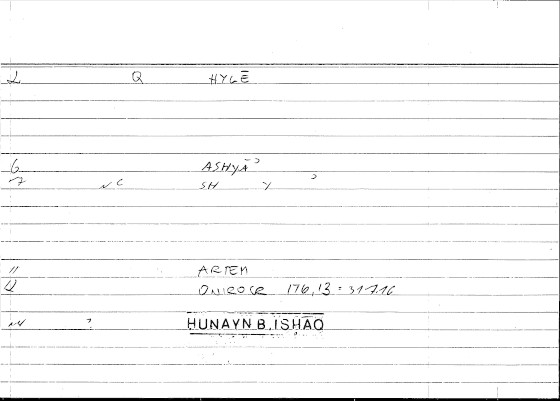 2 Q HYLĒ
6 ASHYĀʾ
7 NC SH Y ʾ
11 ARTEM
12 ONIROCR 176,13 = 317.16
14 ? HUNAYN B. ISHĀQ